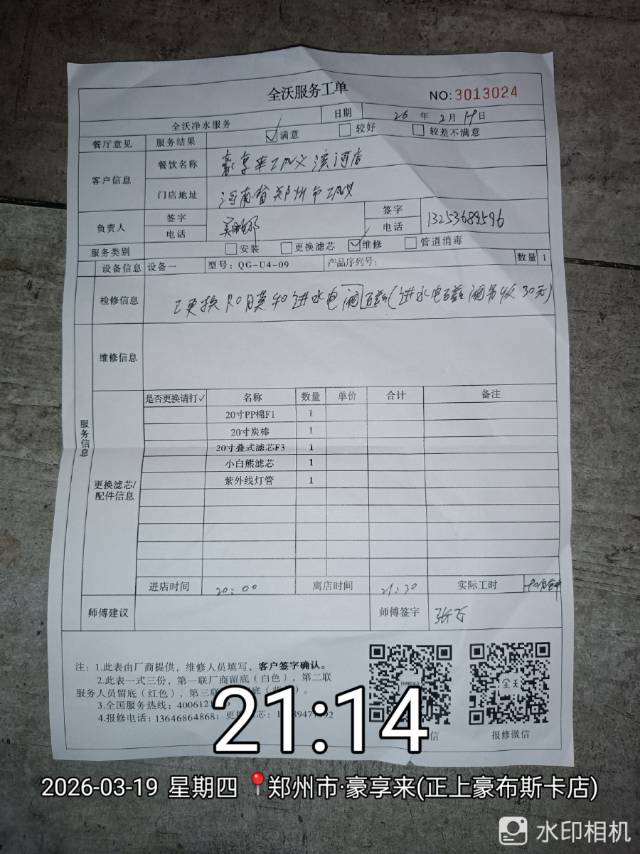 全沃服务工单
NO:3013024
全沃净水服务 日期 26年2月19日
餐厅意见 服务结果 ☑满意 □较好 □较差不满意
客户信息 餐饮名称 豪享来工人文滨河店
门店地址 河南省郑州市
负责人 签字 签字
电话 电话 13253689596
服务类别 □安装 □更换滤芯 ☑维修 □管道消毒
设备信息 设备一 型号：QG-U4-09 产品序列号： 数量 1
检修信息 更换RO膜和进水电磁阀(进水电磁阀 30元)
维修信息
服务信息
是否更换请打✓ 名称 数量 单价 合计 备注
20寸PP棉F1 1
20寸炭棒 1
20寸叠式滤芯F3 1
小白熊滤芯 1
紫外线灯管 1
更换滤芯/
配件信息
进店时间 20:00 离店时间 21:20 实际工时
师傅建议 师傅签字 张
注：1.此表由厂商提供，维修人员填写，客户签字确认。
2.此表一式三份，第一联厂商留底（白色），第二联
服务人员留底（红色），第三联
3.全国服务热线：400612
4.报修电话：13646864868；更
报修微信
21:14
2026-03-19 星期四 郑州市·豪享来(正上豪布斯卡店)
水印相机